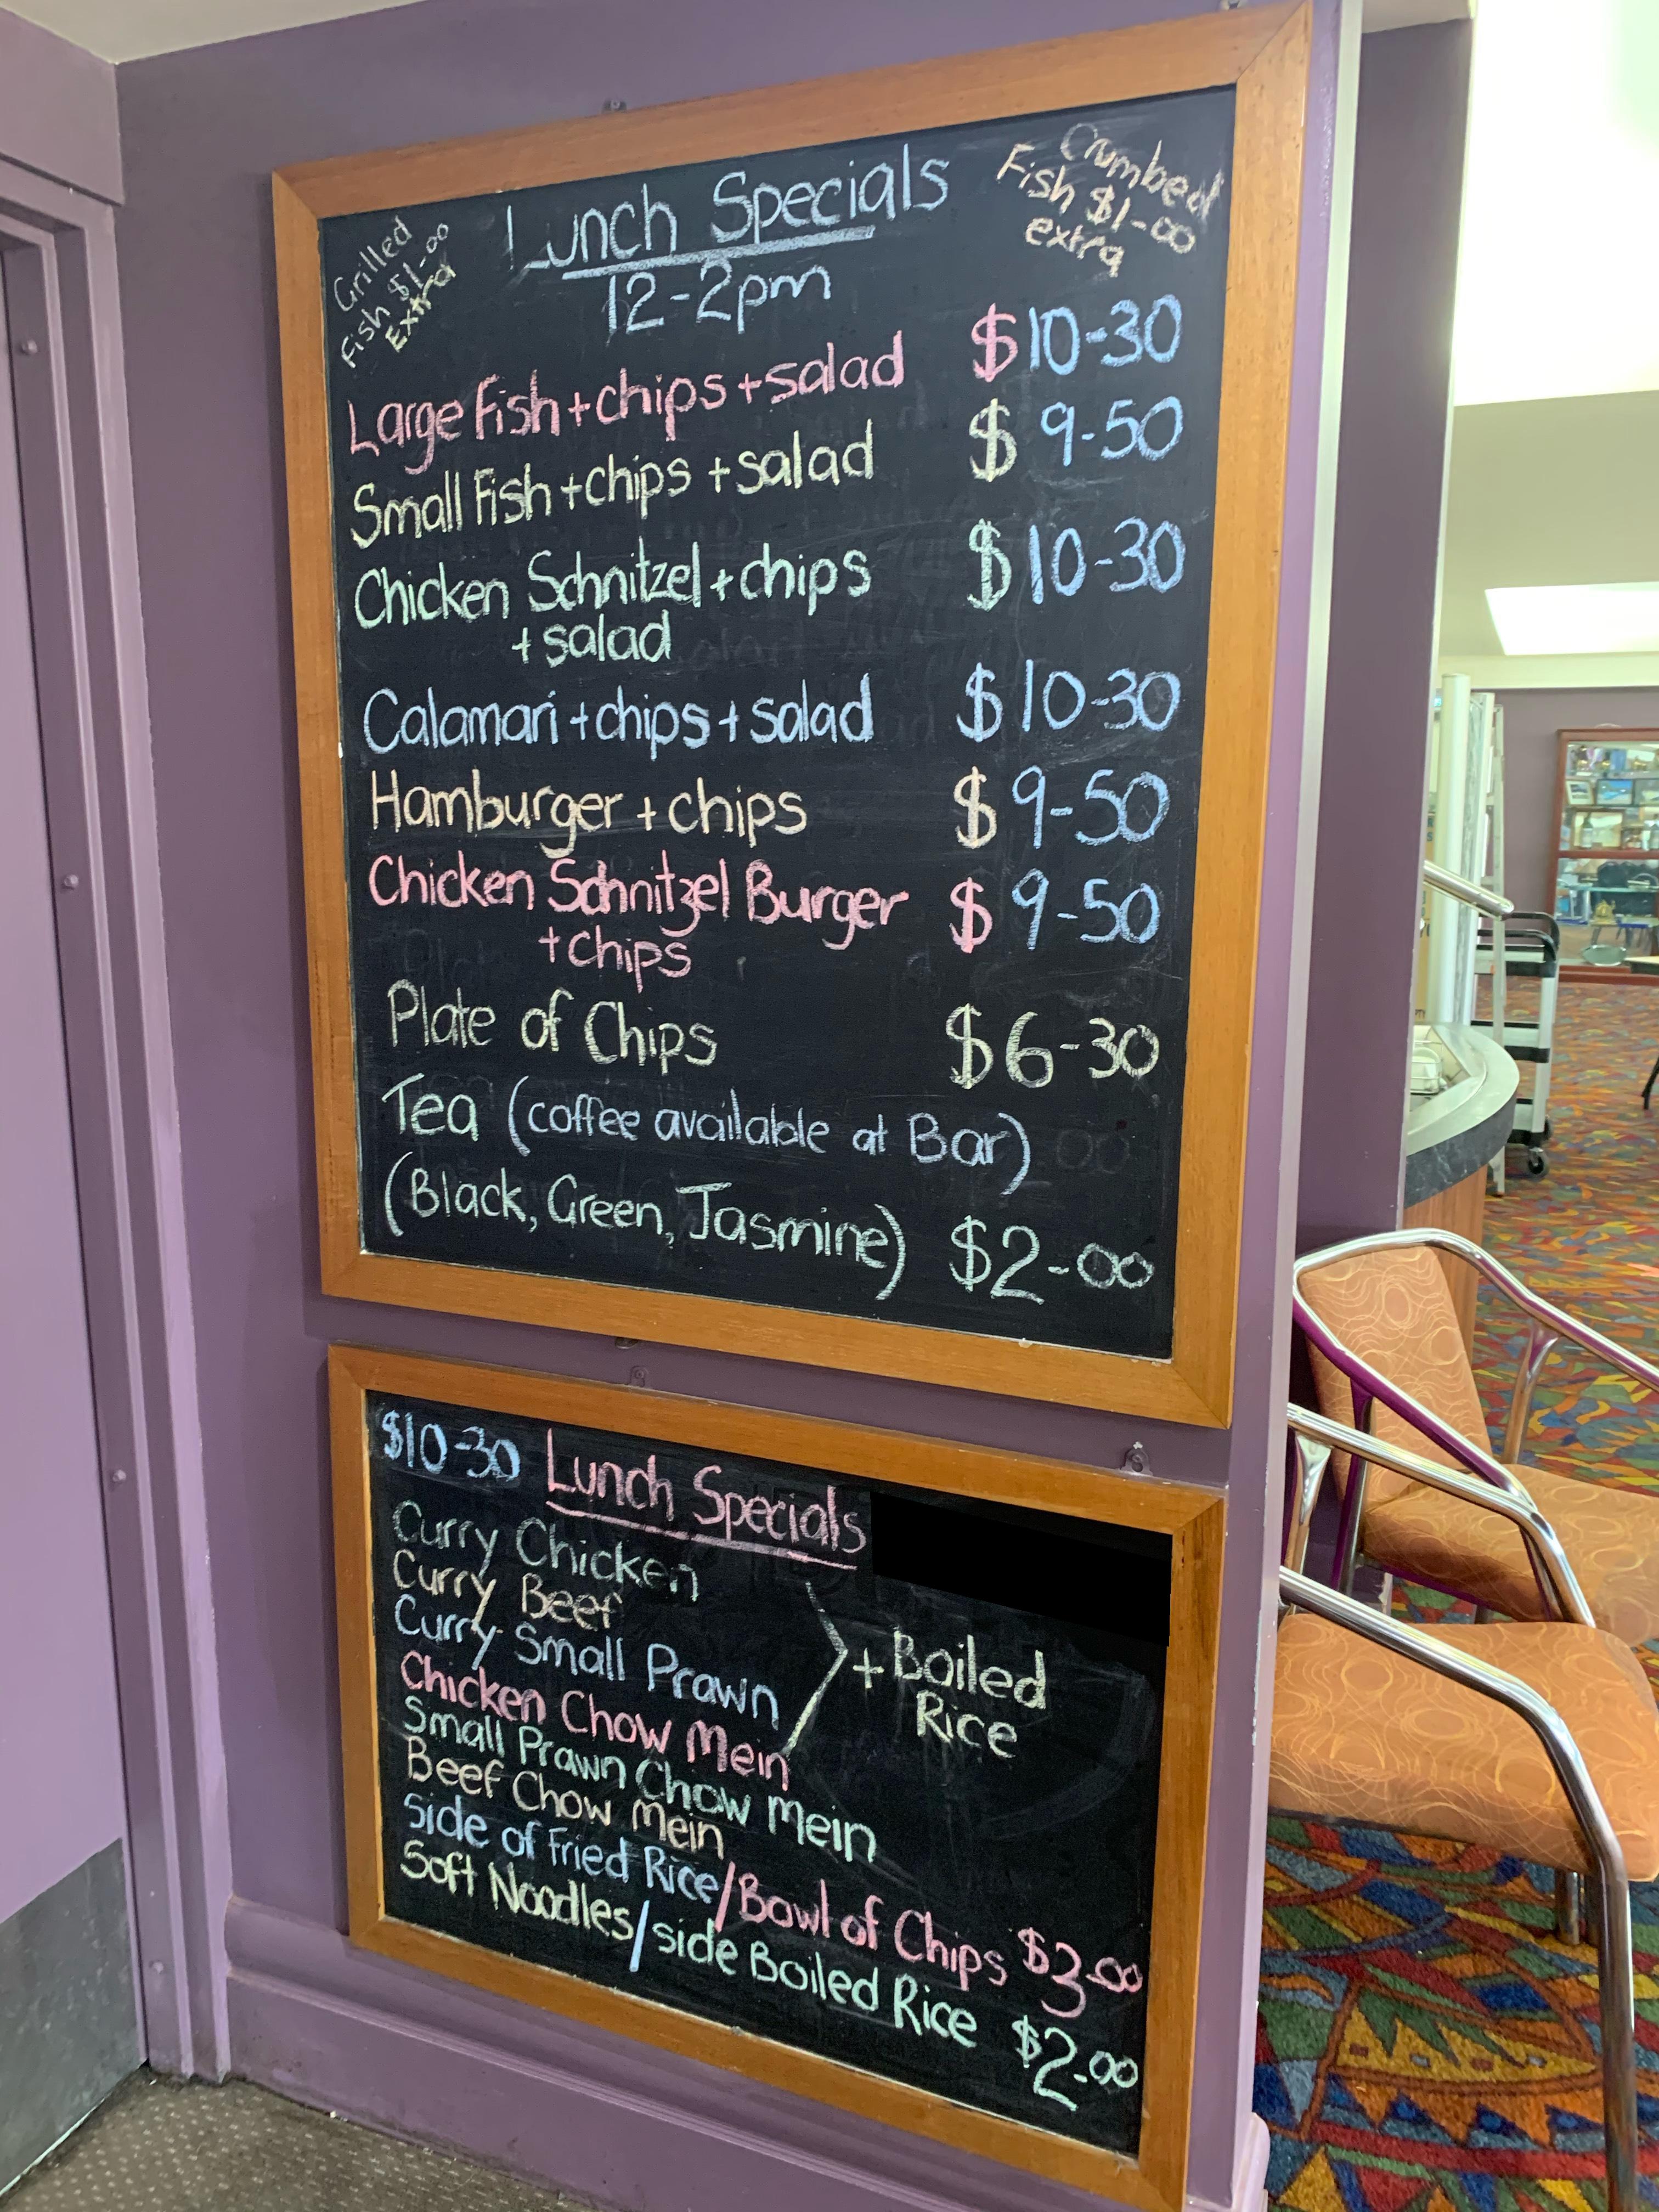 Grilled
Fish $1-00
Extra
Lunch Specials
12-2pm
Crumbed
Fish $1-00
extra
Large Fish+chips+salad $10-30
Small Fish+chips+salad $9-50
Chicken Schnitzel+chips $10-30
+salad
Calamari+chips+salad $10-30
Hamburger+chips $9-50
Chicken Schnitzel Burger $9-50
+chips
Plate of Chips $6-30
Tea (coffee available at Bar)
(Black, Green, Jasmine) $2-00
$10-30 Lunch Specials
Curry Chicken
Curry Beef
Curry Small Prawn
+ Boiled
Rice
Chicken Chow Mein
Small Prawn Chow Mein
Beef Chow Mein
Side of Fried Rice/Bowl of Chips $3-00
Soft Noodles/side Boiled Rice $2-00